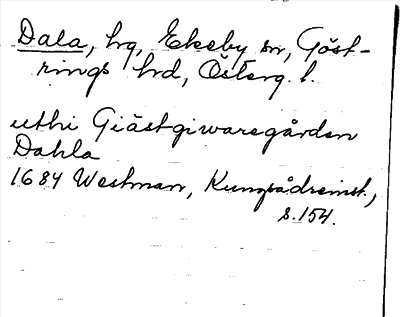 Dala, hg, Ekeby sn, Göst-
rings hrd, Österg. l.
uthi Giästgiwaregården
Dahla
1684 Westman, Kungsådreinst.,
s. 154.